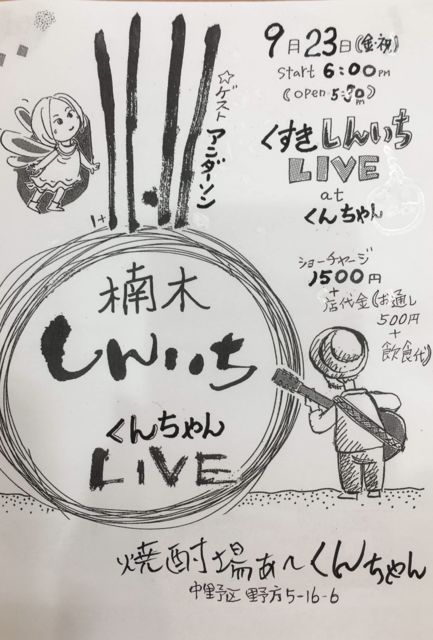 9月23日(金・祝)
Start 6:00PM
(open 5:30PM)
☆ゲスト
アンダーソン
くすきしんいち
LIVE
at
くんちゃん
ショーチャージ
1500円
+
店代金(お通し
500円
+
飲食代)
楠木
しんいち
くんちゃん
LIVE
焼酎場あ〜くんちゃん
中野区野方5-16-6